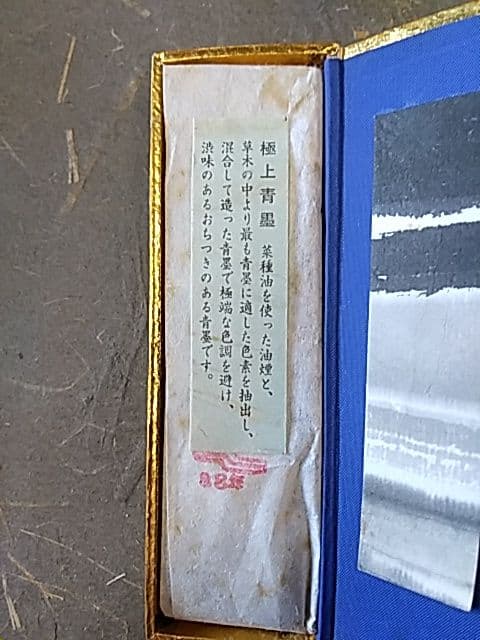 極上青墨　菜種油を使った油煙と、
草木の中より最も青墨に適した色素を抽出し、
混合して造った青墨で極端な色調を避け、
渋味のあるおちつきのある青墨です。